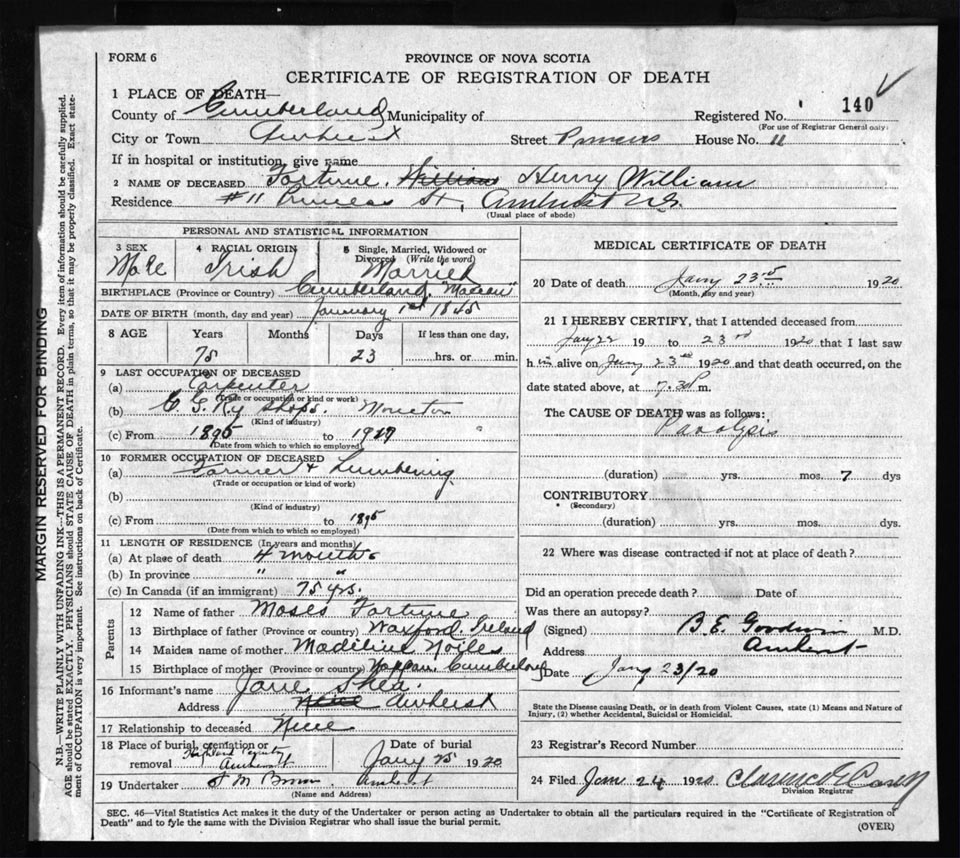 FORM 6
PROVINCE OF NOVA SCOTIA
CERTIFICATE OF REGISTRATION OF DEATH
1 PLACE OF DEATH—
County of Cumberland Municipality of Registered No. 140
(For use of Registrar General only)
City or Town Amherst Street House No. 11
If in hospital or institution, give name
2 NAME OF DECEASED Fortune, William Henry William
Residence #11 St, Amherst N.S.
(Usual place of abode)
PERSONAL AND STATISTICAL INFORMATION
3 SEX 4 RACIAL ORIGIN 5 Single, Married, Widowed or Divorced (Write the word)
Male Irish Married
BIRTHPLACE (Province or Country) Cumberland "Maccan"
DATE OF BIRTH (month, day and year) January 1st 1845
8 AGE Years Months Days If less than one day,
75 23 hrs. or min.
9 LAST OCCUPATION OF DECEASED
(a) Carpenter
(Trade or occupation or kind of work)
(b) C. G. Ry Shops. Moncton
(Kind of industry)
(c) From 1895 to
(Date from which to which so employed)
10 FORMER OCCUPATION OF DECEASED
(a) Farmer & Lumbering
(Trade or occupation or kind of work)
(b)
(Kind of industry)
(c) From to 1895
(Date from which to which so employed)
11 LENGTH OF RESIDENCE (In years and months)
(a) At place of death 4 months
(b) In province " "
(c) In Canada (if an immigrant) 75 yrs.
Parents
12 Name of father Moses Fortune
13 Birthplace of father (Province or country) Waxford Ireland
14 Maiden name of mother Madiline Noiles
15 Birthplace of mother (Province or country) Cumberland
16 Informant's name Jane Shea
Address Niece Amherst
17 Relationship to deceased Niece
18 Place of burial, cremation or removal Highland Amherst
Date of burial Jany 25 1920
19 Undertaker Amherst
(Name and Address)
MEDICAL CERTIFICATE OF DEATH
20 Date of death Jany 23rd 1920
(Month, day and year)
21 I HEREBY CERTIFY, that I attended deceased from
Jany 22 19 to 23rd 1920 that I last saw
h im alive on Jany 23rd 1920 and that death occurred, on the
date stated above, at 7.30 P m.
The CAUSE OF DEATH was as follows:
Paralysis
(duration) yrs. mos. 7 dys
CONTRIBUTORY
(Secondary)
(duration) yrs. mos. dys.
22 Where was disease contracted if not at place of death?
Did an operation precede death? Date of
Was there an autopsy?
(Signed) B. E. Goodwin M.D.
Address Amherst
Date Jany 23/20
State the Disease causing Death, or in death from Violent Causes, state (1) Means and Nature of
Injury, (2) whether Accidental, Suicidal or Homicidal.
23 Registrar's Record Number
24 Filed Jan 24 1920 Clarence
Division Registrar
SEC. 46—Vital Statistics Act makes it the duty of the Undertaker or person acting as Undertaker to obtain all the particulars required in the "Certificate of Registration of
Death" and to fyle the same with the Division Registrar who shall issue the burial permit.
(OVER)
MARGIN RESERVED FOR BINDING
N.B.—WRITE PLAINLY WITH UNFADING INK—THIS IS A PERMANENT RECORD. Every item of information should be carefully supplied.
AGE should be stated EXACTLY. PHYSICIANS should STATE CAUSE OF DEATH in plain terms, so that it may be properly classified. Exact statement
of OCCUPATION is very important. See instructions on back of Certificate.